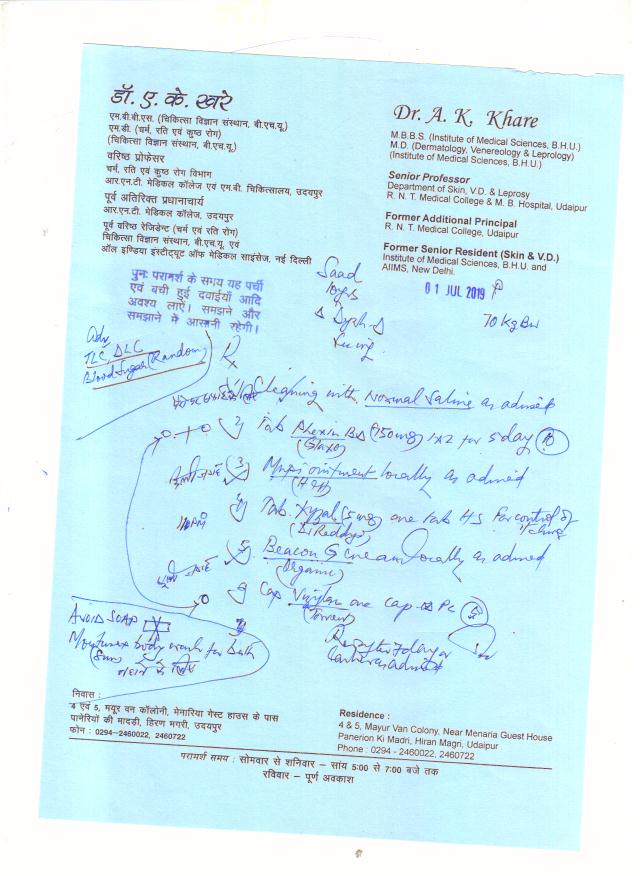 डॉ. ए. के. खरे
एम.बी.बी.एस. (चिकित्सा विज्ञान संस्थान, बी.एच.यू.)
एम.डी. (चर्म, रति एवं कुष्ठ रोग)
(चिकित्सा विज्ञान संस्थान, बी.एच.यू.)
वरिष्ठ प्रोफेसर
चर्म, रति एवं कुष्ठ रोग विभाग
आर.एन.टी. मेडिकल कॉलेज एवं एम.बी. चिकित्सालय, उदयपुर
पूर्व अतिरिक्त प्रधानाचार्य
आर.एन.टी. मेडिकल कॉलेज, उदयपुर
पूर्व वरिष्ठ रेजिडेन्ट (चर्म एवं रति रोग)
चिकित्सा विज्ञान संस्थान, बी.एच.यू. एवं
ऑल इण्डिया इंस्टीट्यूट ऑफ मेडिकल साइंसेज, नई दिल्ली
Dr. A. K. Khare
M.B.B.S. (Institute of Medical Sciences, B.H.U.)
M.D. (Dermatology, Venereology & Leprology)
(Institute of Medical Sciences, B.H.U.)
Senior Professor
Department of Skin, V.D. & Leprosy
R. N. T. Medical College & M. B. Hospital, Udaipur
Former Additional Principal
R. N. T. Medical College, Udaipur
Former Senior Resident (Skin & V.D.)
Institute of Medical Sciences, B.H.U. and
AIIMS, New Delhi.
पुनः परामर्श के समय यह पर्ची
एवं बची हुई दवाईयाँ आदि
अवश्य लाऐं। समझने और
समझाने में आसानी रहेगी।
01 JUL 2019
Saad
70 kg BW
Adv
TLC, DLC
Blood Sugar (Random)
Rx
Cleaning with Normal Saline as advised
2) Tab (750mg) 1x2 for 5 day 10
(Glaxo)
3) ointment locally as advised
4) Tab. Xyzal (5mg) one tab HS for control of
(Dr Reddys)
5) Beacon G cream locally as advised
(Organic)
Cap one cap PC 5
(Torrent)
AVOID SOAP
Moisturex body wash for bath
(Sun)
निवास :
4 एवं 5, मयूर वन कॉलोनी, मेनारिया गेस्ट हाउस के पास
पानेरियों की मादड़ी, हिरण मगरी, उदयपुर
फोन : 0294-2460022, 2460722
Residence :
4 & 5, Mayur Van Colony, Near Menaria Guest House
Panerion Ki Madri, Hiran Magri, Udaipur
Phone : 0294 - 2460022, 2460722
परामर्श समय : सोमवार से शनिवार – सांय 5:00 से 7:00 बजे तक
रविवार – पूर्ण अवकाश